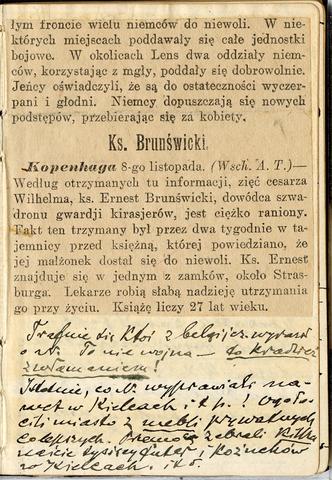 łym froncie wielu niemców do niewoli. W nie-
których miejscach poddawały się całe jednostki
bojowe. W okolicach Lens dwa oddziały niem-
ców, korzystając z mgły, poddały się dobrowolnie.
Jeńcy oświadczyli, że są do ostateczności wyczer-
pani i głodni. Niemcy dopuszczają się nowych
podstępów, przebierając się za kobiety.
Ks. Brunświcki.
Kopenhaga 8-go listopada. (Wsch. A. T.)—
Według otrzymanych tu informacji, zięć cesarza
Wilhelma, ks. Ernest Brunświcki, dowódca szwa-
dronu gwardji kirasjerów, jest ciężko raniony.
Fakt ten trzymany był przez dwa tygodnie w ta-
jemnicy przed księżną, której powiedziano, że
jej małżonek dostał się do niewoli. Ks. Ernest
znajduje się w jednym z zamków, około Stras-
burga. Lekarze robią słabą nadzieję utrzymania
go przy życiu. Książę liczy 27 lat wieku.
Trafnie się ktoś z
To nie wojna — to kradzież
z włamaniem!
Istotnie, co W. wyprawiali na-
wet w Kielcach i t p.!
cili miasto z mebli prywatnych
zabrali kilka
naście tysięcy futer i kożuchów
w Kielcach. i t d.